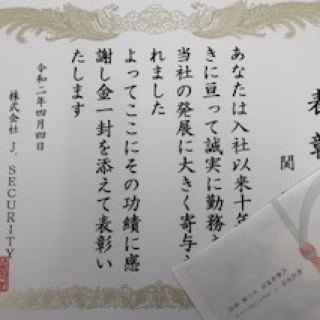 表彰
関
あなたは入社以来十年
きに亘って誠実に勤務
当社の発展に大きく寄与
れました
よってここにその功績に感
謝し金一封を添えて表彰い
たします
令和二年四月四日
株式会社 J. SECURITY